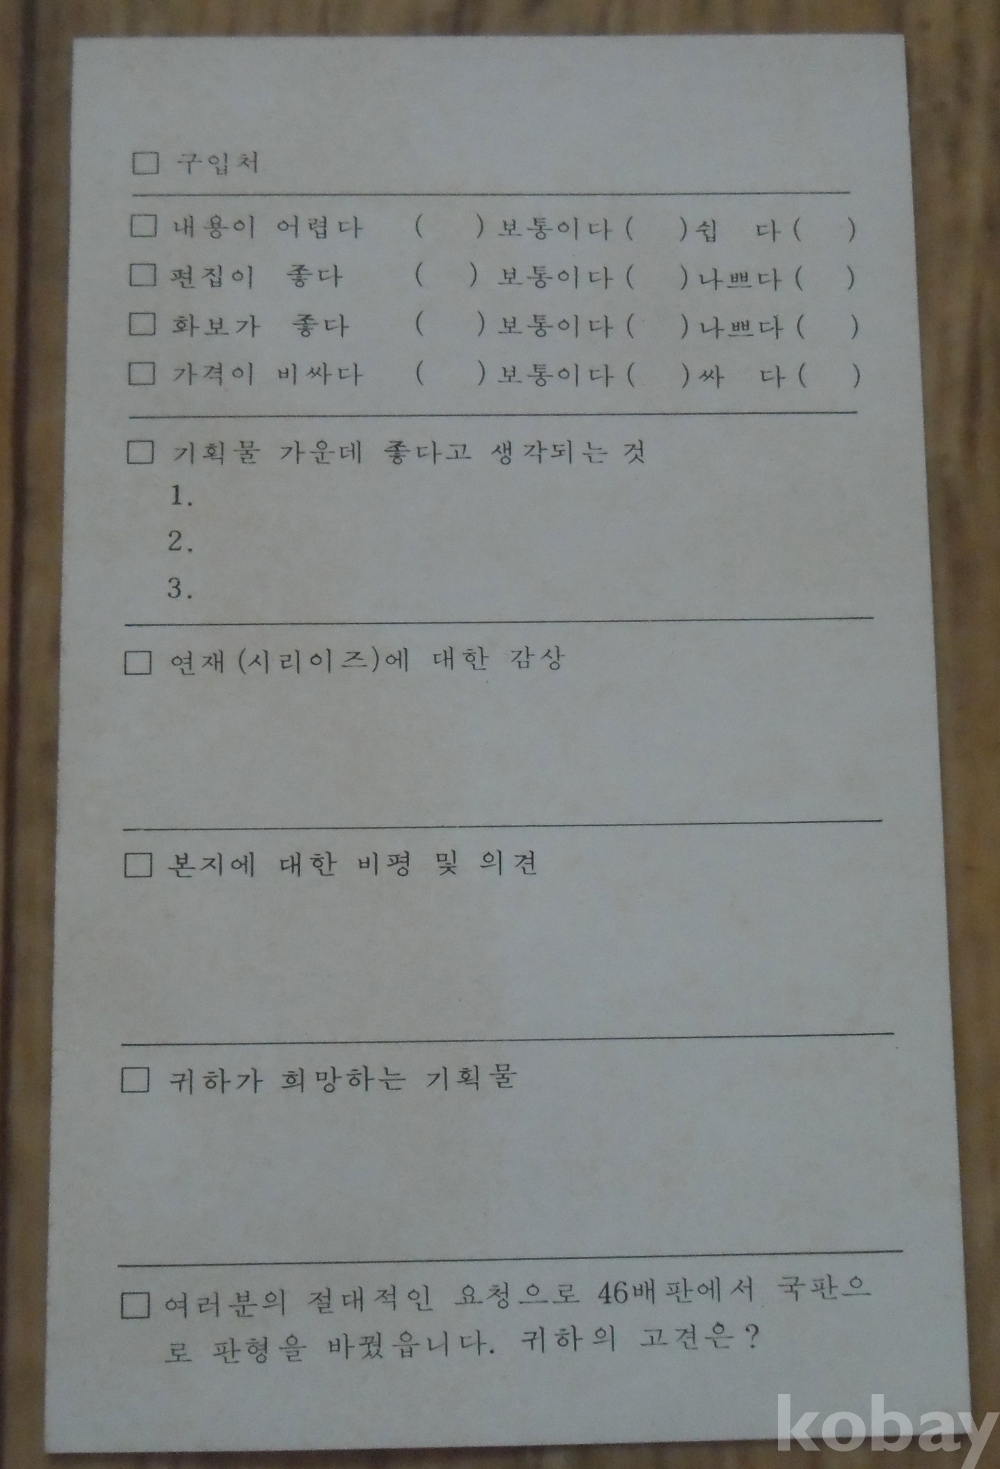 □ 구입처
□ 내용이 어렵다 ( ) 보통이다 ( ) 쉽 다 ( )
□ 편집이 좋다 ( ) 보통이다 ( ) 나쁘다 ( )
□ 화보가 좋다 ( ) 보통이다 ( ) 나쁘다 ( )
□ 가격이 비싸다 ( ) 보통이다 ( ) 싸 다 ( )
□ 기획물 가운데 좋다고 생각되는 것
1.
2.
3.
□ 연재 (시리이즈)에 대한 감상
□ 본지에 대한 비평 및 의견
□ 귀하가 희망하는 기획물
□ 여러분의 절대적인 요청으로 46배판에서 국판으
로 판형을 바꿨읍니다. 귀하의 고견은?
kobay